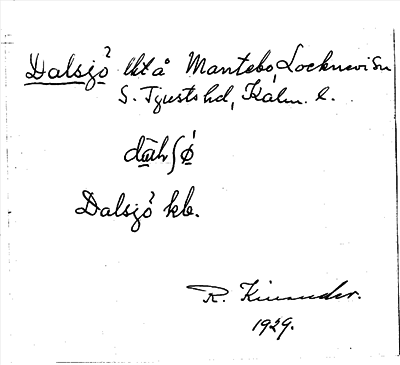 Dalsjö tkt å Mantebo, Locknevi Sn
S. Tjusts hd, Kalm. l.
dahʃö́
Dalsjö kb.
R. Kinander.
1929.